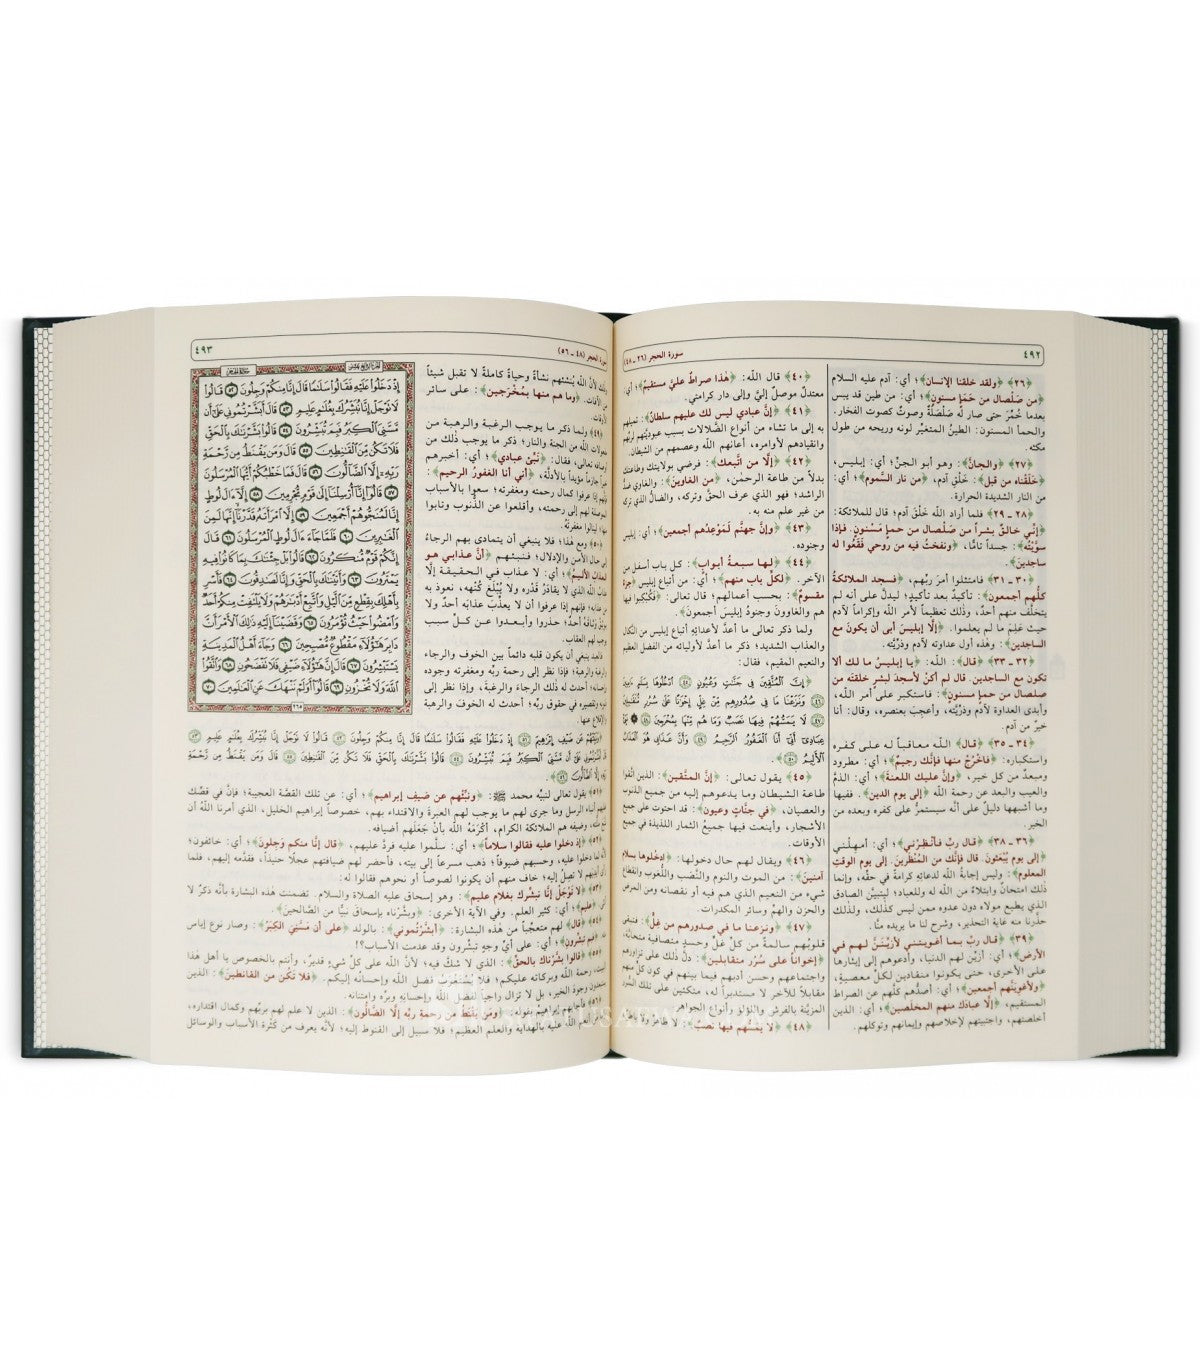 ٤٩٢
سورة الحجر (٢٦ ـ ٤٨)
﴿٢٦﴾ ﴿ولقد خلقنا الإنسان﴾؛ أي: آدم عليه السلام
﴿من صَلْصال من حَمَإٍ مسنون﴾؛ أي: من طين قد يبس
بعدما خُمِّر حتى صار له صَلْصَلَةٌ وصوتٌ كصوت الفخار.
والحمأ المسنون: الطينُ المتغيِّر لونه وريحه من طول
مكثه.
﴿٢٧﴾ ﴿والجانَّ﴾: وهو أبو الجنِّ؛ أي: إبليس،
﴿خَلَقْناه من قبلُ﴾: خَلْقِ آدم، ﴿من نار السَّموم﴾؛ أي:
من النار الشديدة الحرارة.
﴿٢٨ ـ ٢٩﴾ فلما أراد اللّه خَلْقَ آدم؛ قال للملائكة:
﴿إنِّي خالقٌ بشراً من صَلْصال من حمإٍ مَسْنونٍ. فإذا
سوَّيْتُه﴾: جسداً تامًّا، ﴿ونفختُ فيه من روحي فَقَعُوا له
ساجدينَ﴾.
﴿٣٠ ـ ٣١﴾ فامتثلوا أمرَ ربِّهم، ﴿فسجد الملائكةُ
كلُّهم أجمعون﴾: تأكيدٌ بعد تأكيدٍ؛ ليدلَّ على أنه لم
يتخلَّف منهم أحدٌ، وذلك تعظيماً لأمر اللّه وإكراماً لآدم
حيث عَلِمَ ما لم يعلموا. ﴿إلَّا إبليسَ أبى أن يكونَ مع
الساجدين﴾: وهذه أول عداوته لآدم وذُرِّيَّته.
﴿٣٢ ـ ٣٣﴾ ﴿قال﴾: اللّه: ﴿يا إبليسُ ما لك ألا
تكون مع الساجدين. قال لم أكنْ لأسجد لبشرٍ خلقتَه من
صلصال من حمإٍ مسنونٍ﴾: فاستكبر على أمر اللّه،
وأبدى العداوة لآدم وذرِّيَّته، وأعجِبَ بعنصره، وقال: أنا
خيرٌ من آدم.
﴿٣٤ ـ ٣٥﴾ ﴿قال﴾ اللّه معاقباً له على كفره
واستكباره: ﴿فاخْرُجْ منها فإنك رجيمٌ﴾؛ أي: مطرود
ومبعدٌ من كل خير، ﴿وإنَّ عليك اللعنة﴾؛ أي: الذمُّ
والعيب والبعد عن رحمة اللّه ﴿إلى يوم الدين﴾. ففيها
وما أشبهها دليلٌ على أنَّه سيستمرُّ على كفره وبعده من
الخير.
﴿٣٦ ـ ٣٨﴾ ﴿قال ربِّ فأنظِرْني﴾؛ أي: أمهِلْني
﴿إلى يوم يُبْعَثونَ. قال فإنَّك من المُنْظَرينَ. إلى يوم الوقتِ
المعلوم﴾: وليس إجابةُ اللّه لدعائِهِ كرامةً في حقِّه، وإنما
ذلك امتحانٌ وابتلاءٌ من اللّه له وللعباد؛ ليتبيَّن الصادق
الذي يطيع مولاه دون عدوه ممن ليس كذلك، ولذلك
حذَّرنا منه غاية التحذير، وشرح لنا ما يريده منَّا.
﴿٣٩﴾ ﴿قال ربِّ بما أغويتني لأزيِّنَنَّ لهم في
الأرض﴾؛ أي: أزيِّن لهم الدنيا، وأدعوهم إلى إيثارها
على الأخرى، حتى يكونوا منقادين لكلِّ معصيةٍ،
﴿ولأغوينَّهم أجمعين﴾؛ أي: أصدُّهم كلَّهم عن الصراط
المستقيم، ﴿إلَّا عبادَك منهم المخلَصين﴾؛ أي: الذين
أخلصتهم، واجتبيتهم لإخلاصهم وإيمانهم وتوكلهم.
﴿٤٠﴾ قال اللّه: ﴿هذا صراطٌ عليَّ مستقيمٌ﴾؛ أي:
معتدلٌ موصلٌ إليَّ وإلى دار كرامتي.
﴿٤١﴾ ﴿إنَّ عبادي ليس لك عليهم سلطانٌ﴾: تميلهم
به إلى ما تشاء من أنواع الضَّلالات بسبب عبوديَّتهم لربِّهم
وانقيادهم لأوامره، أعانهم اللّه وعصمهم من الشيطان.
﴿٤٢﴾ ﴿إلَّا من اتَّبعك﴾: فرضي بولايتك وطاعتك
بدلاً من طاعة الرحمن، ﴿من الغاوين﴾: والغاوي ضدُّ
الراشد؛ فهو الذي عرف الحقَّ وتركه، والضالُّ الذي تركه
من غير علم منه به.
﴿٤٣﴾ ﴿وإنَّ جهنَّم لَمَوْعِدُهم أجمعين﴾؛ أي: إبليس
وجنوده.
﴿٤٤﴾ ﴿لها سبعةُ أبوابٍ﴾: كل باب أسفل من
الآخر. ﴿لكلِّ باب منهم﴾؛ أي: من أتباع إبليس ﴿جزءٌ
مقسومٌ﴾: بحسب أعمالهم؛ قال تعالى: ﴿فَكُبْكِبوا فيها
هم والغاوونَ وجنودُ إبليسَ أجمعونَ﴾.
ولما ذكر تعالى ما أعدَّ لأعدائِهِ أتباع إبليس من النَّكال
والعذاب الشديد؛ ذكر ما أعدَّ لأوليائه من الفضل العظيم
والنعيم المقيم، فقال:
﴿إِنَّ الْمُتَّقِينَ فِي جَنَّاتٍ وَعُيُونٍ ٤٥ ادْخُلُوهَا بِسَلَامٍ
٤٦ وَنَزَعْنَا مَا فِي صُدُورِهِم مِّنْ غِلٍّ إِخْوَانًا عَلَى سُرُرٍ مُّتَقَابِلِينَ
٤٧ لَا يَمَسُّهُمْ فِيهَا نَصَبٌ وَمَا هُم مِّنْهَا بِمُخْرَجِينَ ٤٨
عِبَادِي أَنِّي أَنَا الْغَفُورُ الرَّحِيمُ ٤٩ وَأَنَّ عَذَابِي هُوَ الْعَذَابُ
الْأَلِيمُ ٥٠﴾.
﴿٤٥﴾ يقول تعالى: ﴿إنَّ المتَّقين﴾: الذين اتَّقوا
طاعة الشيطان وما يدعوهم إليه من جميع الذنوب
والعصيان، ﴿في جنَّاتٍ وعيون﴾: قد احتوت على جميع
الأشجار، وأينعت فيها جميعُ الثمار اللذيذة في جميع
الأوقات.
﴿٤٦﴾ ويقال لهم حال دخولها: ﴿ادخُلوها بسلام
آمنينَ﴾: من الموت والنوم والنَّصَب واللُّغوب وانقطاع
شيء من النعيم الذي هم فيه أو نقصانه ومن المرض
والحزن والهمِّ وسائر المكدرات.
﴿٤٧﴾ ﴿ونزعنا ما في صدورهم من غِلٍّ﴾: فتبقى
قلوبُهم سالمةً من كلِّ غلٍّ وحسدٍ متصافيةً متحابَّة،
﴿إخواناً على سُرُر متقابلين﴾: دلَّ ذلك على تزاورهم
واجتماعهم وحسن أدبهم فيما بينهم في كون كلٍّ منهم
مقابلاً للآخر لا مستدبراً له، متكئين على تلك السُّرر
المزيَّنة بالفرش واللؤلؤ وأنواع الجواهر.
﴿٤٨﴾ ﴿لا يمسُّهم فيها نصبٌ﴾: لا ظاهرٌ ولا باطنٌ
سورة الحجر (٤٨ ـ ٥٦)
٤٩٣
وذلك لأنَّ اللّه يُنشئهم نشأةً وحياةً كاملةً لا تقبل شيئاً
من الآفات. ﴿وما هم منها بمُخْرَجين﴾: على سائر
الأوقات.
﴿٤٩﴾ ولما ذكر ما يوجب الرغبة والرهبة من
مفعولات اللّه من الجنة والنار؛ ذكر ما يوجب ذلك من
أوصافه تعالى، فقال: ﴿نَبِّئ عبادي﴾؛ أي: أخبرهم
خبراً جازماً مؤيداً بالأدلَّة، ﴿أني أنا الغفورُ الرحيم﴾:
فإنهم إذا عرفوا كمال رحمته ومغفرته؛ سعوا بالأسباب
الموصلة لهم إلى رحمته، وأقلعوا عن الذُّنوب وتابوا
منها؛ لينالوا مغفرتَه.
﴿٥٠﴾ ومع هذا؛ فلا ينبغي أن يتمادى بهم الرجاءُ
إلى حال الأمن والإدلال؛ فنبِّئهم ﴿أنَّ عذابي هو
العذابُ الأليمُ﴾؛ أي: لا عذاب في الحقيقة إلَّا
عذاب اللّه الذي لا يقادَرُ قَدْره ولا يُبْلَغُ كُنْهه، نعوذ به
من عذابه؛ فإنهم إذا عرفوا أن لا يعذِّب عذابه أحدٌ ولا
يوثِقُ وَثاقَهُ أحدٌ؛ حذروا وأبعدوا عن كلِّ سبب
يوجب لهم العقاب.
فالعبد ينبغي أن يكون قلبه دائماً بين الخوف والرجاء
والرغبة والرهبة؛ فإذا نظر إلى رحمة ربِّه ومغفرته وجوده
وإحسانه؛ أحدث له ذلك الرجاءَ والرغبة، وإذا نظر إلى
ذنوبه وتقصيره في حقوق ربِّه؛ أحدث له الخوف والرهبة
والإقلاع عنها.
إِذْ دَخَلُوا عَلَيْهِ فَقَالُوا سَلَامًا قَالَ إِنَّا مِنكُمْ وَجِلُونَ ٥٢ قَالُوا
لَا تَوْجَلْ إِنَّا نُبَشِّرُكَ بِغُلَامٍ عَلِيمٍ ٥٣ قَالَ أَبَشَّرْتُمُونِي عَلَى أَن
مَّسَّنِيَ الْكِبَرُ فَبِمَ تُبَشِّرُونَ ٥٤ قَالُوا بَشَّرْنَاكَ بِالْحَقِّ
فَلَا تَكُن مِّنَ الْقَانِطِينَ ٥٥ قَالَ وَمَن يَقْنَطُ مِن رَّحْمَةِ
رَبِّهِ إِلَّا الضَّالُّونَ ٥٦ قَالَ فَمَا خَطْبُكُمْ أَيُّهَا الْمُرْسَلُونَ
٥٧ قَالُوا إِنَّا أُرْسِلْنَا إِلَى قَوْمٍ مُّجْرِمِينَ ٥٨ إِلَّا آلَ لُوطٍ
إِنَّا لَمُنَجُّوهُمْ أَجْمَعِينَ ٥٩ إِلَّا امْرَأَتَهُ قَدَّرْنَا إِنَّهَا لَمِنَ
الْغَابِرِينَ ٦٠ فَلَمَّا جَاءَ آلَ لُوطٍ الْمُرْسَلُونَ ٦١ قَالَ
إِنَّكُمْ قَوْمٌ مُّنكَرُونَ ٦٢ قَالُوا بَلْ جِئْنَاكَ بِمَا كَانُوا فِيهِ
يَمْتَرُونَ ٦٣ وَأَتَيْنَاكَ بِالْحَقِّ وَإِنَّا لَصَادِقُونَ ٦٤ فَأَسْرِ
بِأَهْلِكَ بِقِطْعٍ مِّنَ اللَّيْلِ وَاتَّبِعْ أَدْبَارَهُمْ وَلَا يَلْتَفِتْ مِنكُمْ أَحَدٌ
وَامْضُوا حَيْثُ تُؤْمَرُونَ ٦٥ وَقَضَيْنَا إِلَيْهِ ذَلِكَ الْأَمْرَ أَنَّ
دَابِرَ هَؤُلَاءِ مَقْطُوعٌ مُّصْبِحِينَ ٦٦ وَجَاءَ أَهْلُ الْمَدِينَةِ
يَسْتَبْشِرُونَ ٦٧ قَالَ إِنَّ هَؤُلَاءِ ضَيْفِي فَلَا تَفْضَحُونِ ٦٨ وَاتَّقُوا
اللَّهَ وَلَا تُخْزُونِ ٦٩ قَالُوا أَوَلَمْ نَنْهَكَ عَنِ الْعَالَمِينَ ٧٠
٢٦٥
﴿وَنَبِّئْهُمْ عَن ضَيْفِ إِبْرَاهِيمَ ٥١ إِذْ دَخَلُوا عَلَيْهِ فَقَالُوا سَلَامًا قَالَ إِنَّا مِنكُمْ وَجِلُونَ ٥٢ قَالُوا لَا تَوْجَلْ إِنَّا نُبَشِّرُكَ بِغُلَامٍ عَلِيمٍ ٥٣
قَالَ أَبَشَّرْتُمُونِي عَلَى أَن مَّسَّنِيَ الْكِبَرُ فَبِمَ تُبَشِّرُونَ ٥٤ قَالُوا بَشَّرْنَاكَ بِالْحَقِّ فَلَا تَكُن مِّنَ الْقَانِطِينَ ٥٥ قَالَ وَمَن يَقْنَطُ مِن رَّحْمَةِ
رَبِّهِ إِلَّا الضَّالُّونَ ٥٦﴾.
﴿٥١﴾ يقول تعالى لنبيِّه محمد ﷺ: ﴿ونبِّئهم عن ضَيفِ إبراهيم﴾؛ أي: عن تلك القصَّة العجيبة؛ فإنَّ في قصِّك
عليهم أنباء الرسل وما جرى لهم ما يوجب لهم العبرة والاقتداء بهم، خصوصاً إبراهيم الخليل، الذي أمرنا اللّه أن
نتَّبع ملَّته، وضيفه هم الملائكة الكرام، أكْرَمَهُ اللّه بأنْ جَعَلَهم أضيافه.
﴿٥٢﴾ ﴿إذ دخلوا عليه فقالوا سلاماً﴾؛ أي: سلَّموا عليه فردَّ عليهم، ﴿قال إنَّا منكم وَجِلونَ﴾؛ أي: خائفون؛
لأنه لما دخلوا عليه، وحسبهم ضيوفاً؛ ذهب مسرعاً إلى بيته، فأحضر لهم ضيافتهم عجلاً حنيذاً، فقدَّمه إليهم، فلما
رأى أيديَهم لا تصلُ إليه؛ خاف منهم أن يكونوا لصوصاً أو نحوهم فقالوا له:
﴿٥٣﴾ ﴿لا تَوْجَلْ إنَّا نبشِّرك بغلام عليم﴾: وهو إسحاق عليه الصلاة والسلام. تضمنت هذه البشارة بأنَّه ذكرٌ لا
أنثى، ﴿عليم﴾؛ أي: كثير العلم. وفي الآية الأخرى: ﴿وبشَّرناه بإسحاقَ نبيًّا من الصَّالحين﴾.
﴿٥٤﴾ ﴿قال﴾ لهم متعجِّباً من هذه البشارة: ﴿أبشَّرْتُموني﴾: بالولد ﴿على أن مَسَّنيَ الكِبَرُ﴾: وصار نوع إياس
منه، ﴿فبم تبشِّرون﴾؛ أي: على أيِّ وجهٍ تبشِّرون وقد عدمت الأسباب؟!
﴿٥٥﴾ ﴿قالوا بشَّرناك بالحقِّ﴾: الذي لا شكَّ فيه؛ لأنَّ اللّه على كلِّ شيءٍ قديرٌ، وأنتم بالخصوص يا أهل هذا
البيت، رحمة اللّه وبركاته عليكم؛ فلا يُسْتَغْرَبُ فضل اللّه وإحسانُه إليكم. ﴿فلا تَكُن من القانطينَ﴾: الذين
يستبعدون وجودَ الخير، بل لا تزال راجياً لفضل اللّه وإحسانِهِ وبرِّه وامتنانه.
﴿٥٦﴾ ﴿ومَن يَقْنَطُ من رحمةِ ربِّه إلَّا الضَّالُّون﴾: الذين لا علم لهم بربِّهم وكمال اقتداره،
أنعم اللّه عليه بالهداية والعلم العظيم؛ فلا سبيل إلى القنوط إليه؛ لأنَّه يعرف من كثرة الأسباب والوسائل